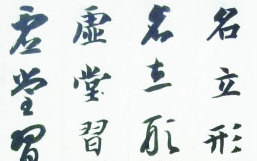 名立形
名立形
虛堂習
虛堂習